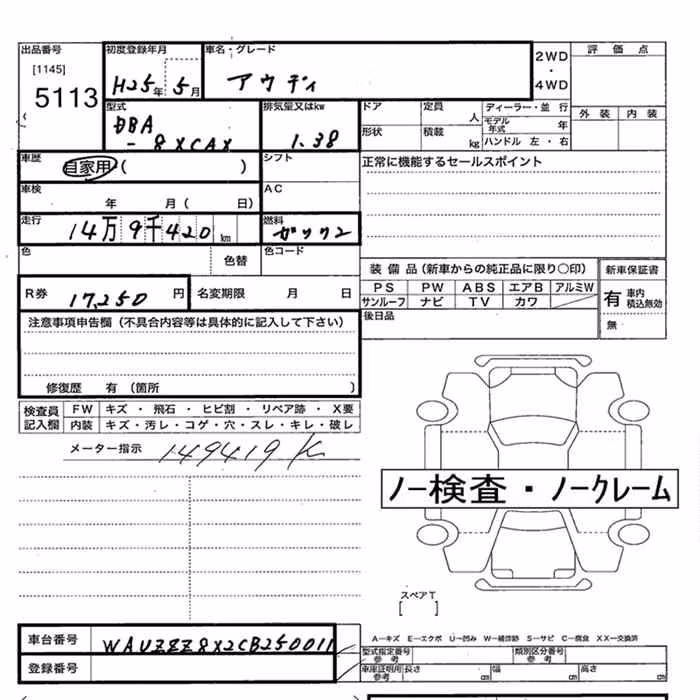 出品番号 [1145] 5113
初度登録年月 H25年 5月
車名・グレード アウディ
2WD・4WD
評価点
外装 内装
型式 DBA - 8XCAX
排気量又はkw 1.38
ドア 定員 人
形状 積載 kg
ディーラー・並行
モデル年式 年
ハンドル 左・右
車歴 自家用 ( )
シフト
正常に機能するセールスポイント
車検 年 月 ( 日)
AC
走行 14万9千420 km
燃料 ガソリン
色 色替
色コード
装備品(新車からの純正品に限り○印)
新車保証書
PS PW ABS エアB アルミW
サンルーフ ナビ TV カワ
有 車内積込無効
無
R券 17,250 円
名変期限 月 日
後日品
注意事項申告欄(不具合内容等は具体的に記入して下さい)
修復歴 有 (箇所 )
検査員記入欄
FW キズ・飛石・ヒビ割・リペア跡・X要
内装 キズ・汚レ・コゲ・穴・スレ・キレ・破レ
メーター指示 149419 K
ノー検査・ノークレーム
スペアT
[ ]
車台番号 WAUZZZ8X2CB250011
登録番号
A—キズ E—エクボ U—凹み W—補修跡 S—サビ C—腐食 XX—交換済
型式指定番号 参考
類別区分番号 参考
車庫証明用 参考 長さ cm 幅 cm 高さ cm